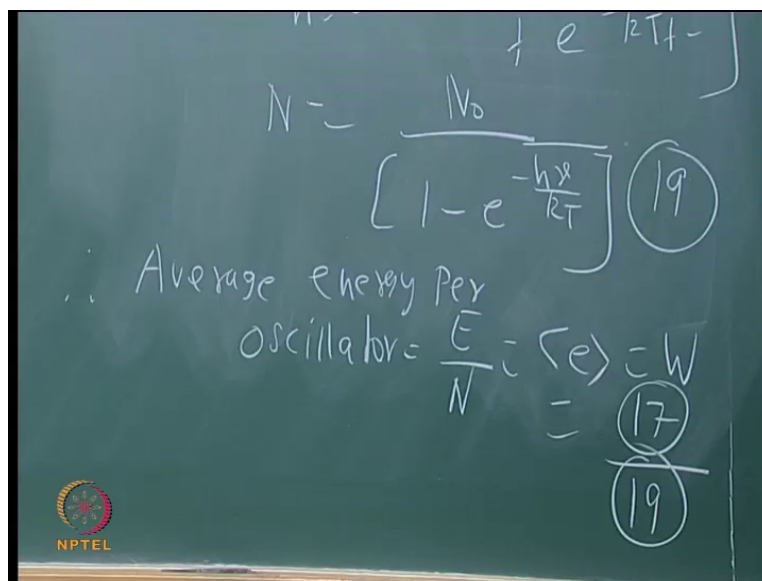 e
N = N₀
[1 - e^{-hν/kT}] (19)
∴ Average energy Per
oscillator = E/N = <e> = W
= (17)
(19)
NPTEL